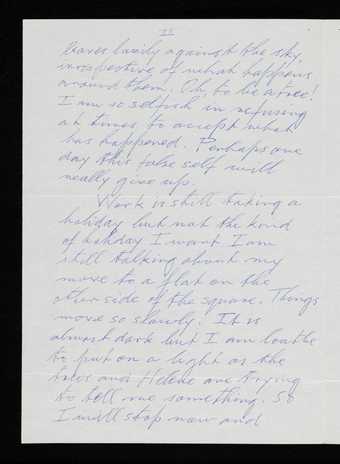 II
leaves lazily against the sky,
irrespective of what happens
around them. Oh, to be a tree!
I am so selfish in refusing
at times to accept what
has happened. Perhaps one
day this false self will
really give up.
Work is still taking a
holiday but not the kind
of holiday I want. I am
still talking about my
move to a flat on the
other side of the square. Things
move so slowly! It is
almost dark but I am loathe
to put on a light as the
trees and Helene are trying
to tell me something. So
I will stop now and